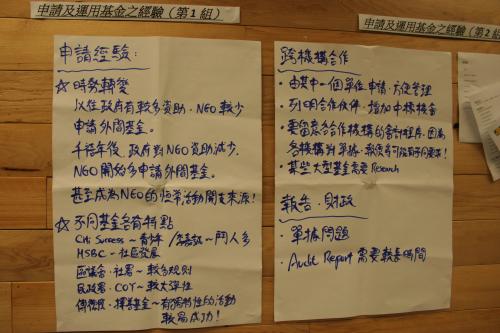 申請及運用基金之經驗（第1組）
申請經驗：
☆時勢轉變
以往政府有較多資助，NGO較少
申請外間基金。
千禧年後，政府對NGO資助減少，
NGO開始多申請外間基金。
甚至成為NGO的恆常活動開支來源！
☆不同基金各有特點
Citi Success ~ 青少年
~ 門人多
HSBC - 社區發展
區議會、社署 ~ 較多規則
民政署、COY ~ 較大彈性
~ 有獨特性的活動
較易成功！
申請及運用基金之經驗（第2組
跨機構合作
· 由其中一個單位申請，方便管理
· 列明合作伙伴，增加中標機會
· 要留意各合作機構的會計程序，因為
各機構對單據
· 某些大型基金需要 Research
報告、財政
· 單據問題
· Audit Report 需要較長時間